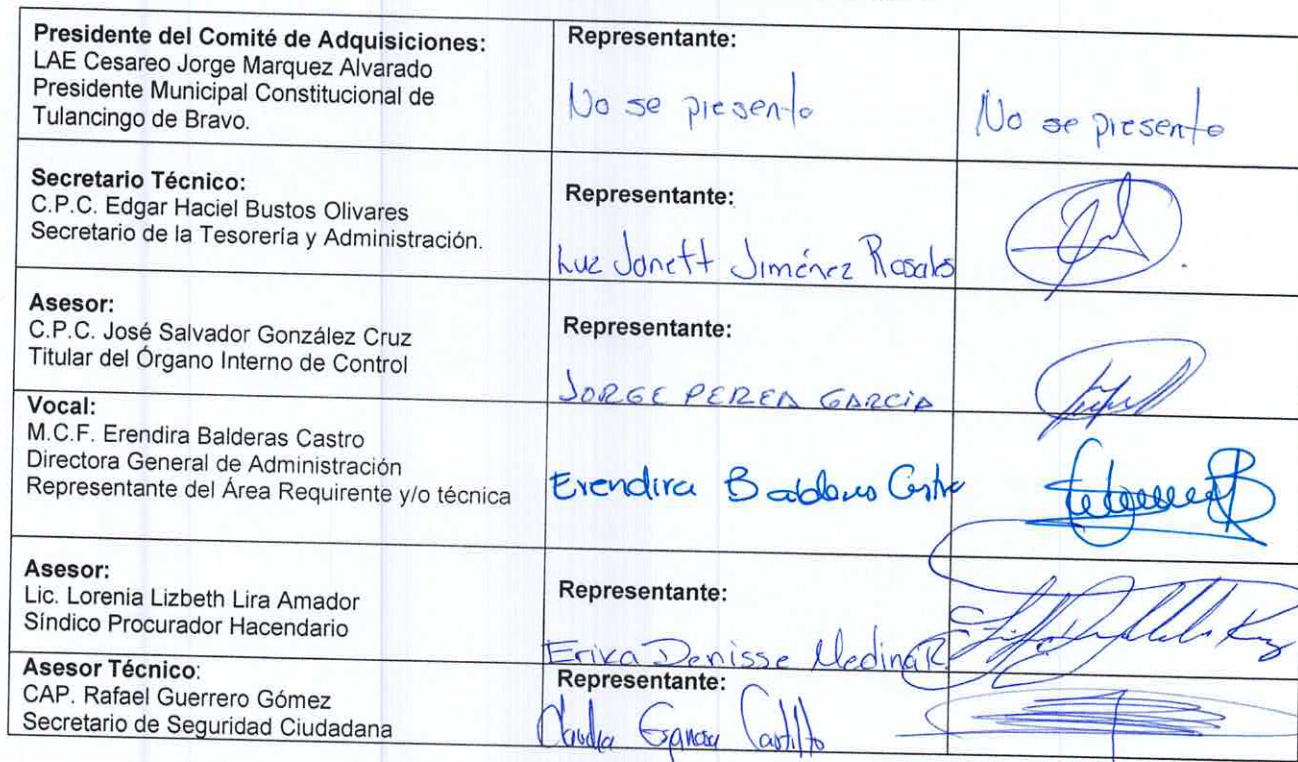 Presidente del Comité de Adquisiciones:
LAE Cesareo Jorge Marquez Alvarado
Presidente Municipal Constitucional de
Tulancingo de Bravo.
Representante:
No se presento
No se presento
Secretario Técnico:
C.P.C. Edgar Haciel Bustos Olivares
Secretario de la Tesorería y Administración.
Representante:
Luz Janett Jiménez Rosales
Asesor:
C.P.C. José Salvador González Cruz
Titular del Órgano Interno de Control
Representante:
JORGE PEREA GARCIA
Vocal:
M.C.F. Erendira Balderas Castro
Directora General de Administración
Representante del Área Requirente y/o técnica
Erendira Balderas Castro
Asesor:
Lic. Lorenia Lizbeth Lira Amador
Síndico Procurador Hacendario
Representante:
Erika Denisse Medina R
Asesor Técnico:
CAP. Rafael Guerrero Gómez
Secretario de Seguridad Ciudadana
Representante:
Claudia Castillo